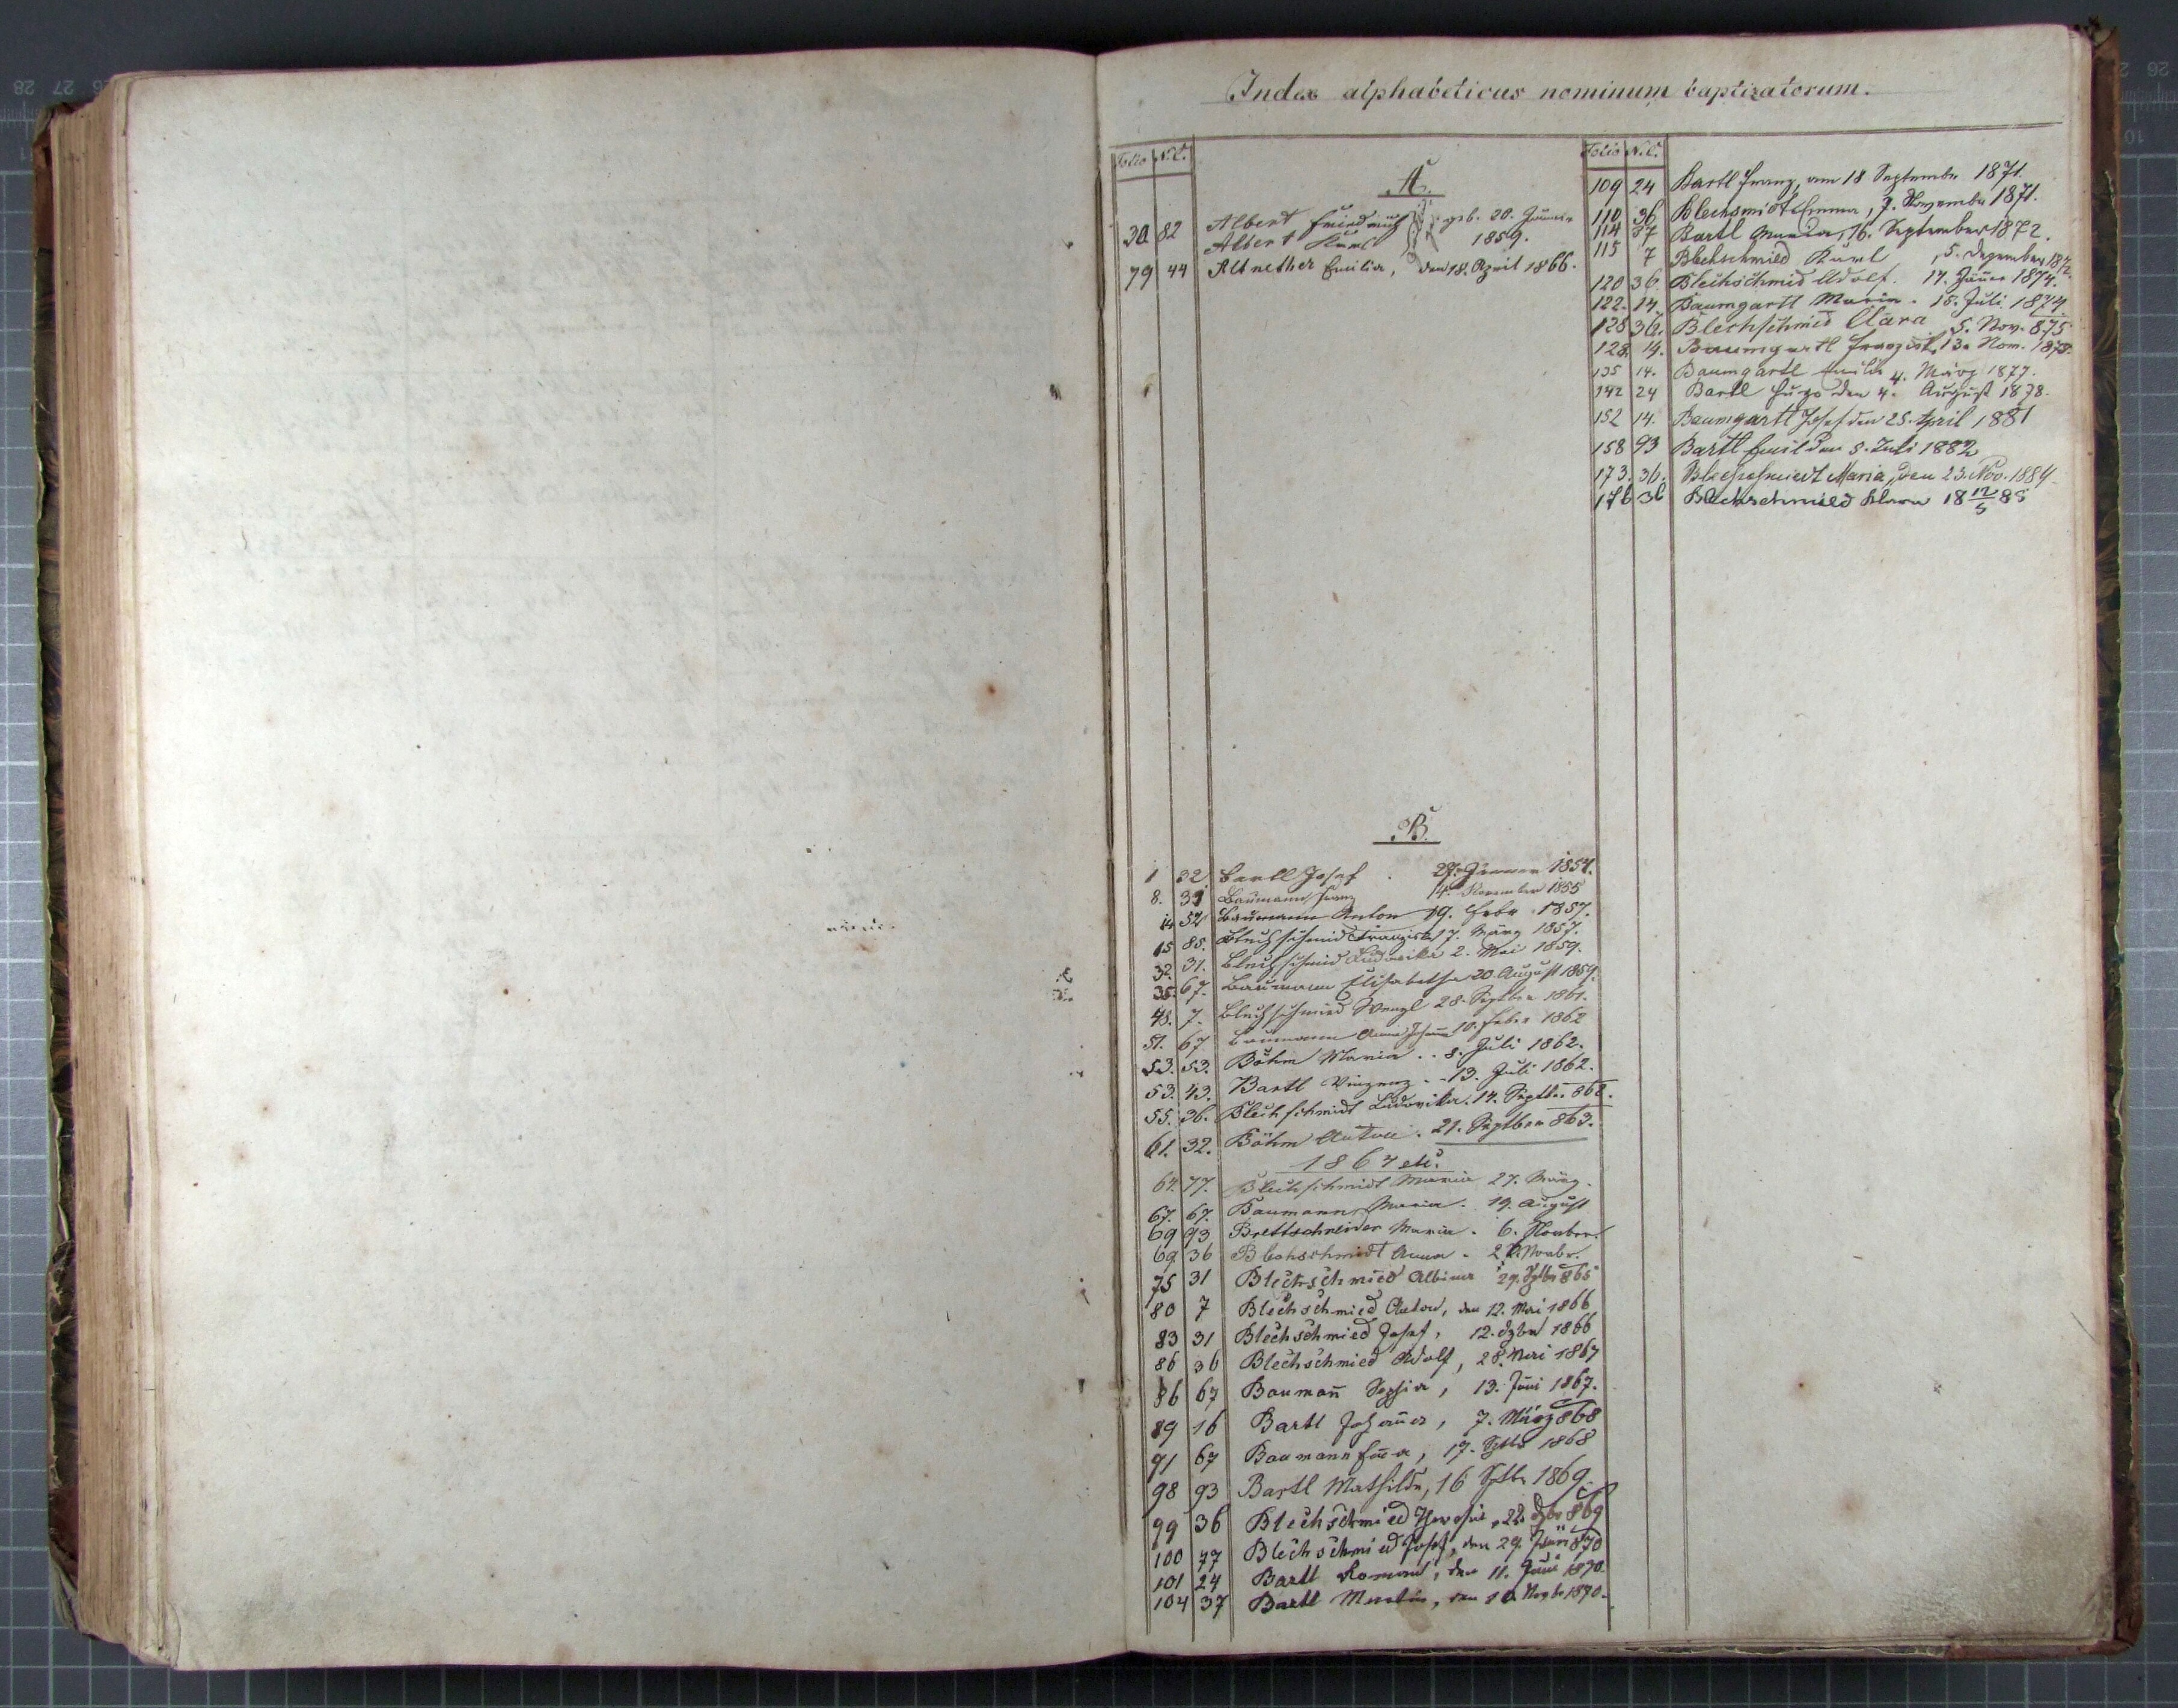 Index alphabeticus nominum baptizatorum.
Folio N. C.
A.
30 82 Albert Friedrich geb. 20. Jänner
Albert Karl 1859.
79 44 Altnether Emilia, den 18. April 1866.
B.
1 32 Bartl Josef . 29. Jänner 1854.
8. 31 Baumann Franz 14. November 1855
14 52 Baumann Anton 19. Febr 1857.
15 85. Blechschmid Franziska 17. März 1857.
32. 31. Blechschmid Ludovika 2. Mai 1859.
35. 67. Baumann Elisabetha 20. August 1859.
48. 7. Blechschmied Wenzl 28. Septber 1861.
51. 67 Baumann Anna 10. Feber 1862
53. 53. Böhm Maria . . 8. Juli 1862.
53. 43. Bartl Vinzenz . - 13. Juli 1862.
55. 36. Blechschmidt Ludovika. 14. Septbr. 862.
61. 32. Böhm Anton . 21. Septber 863.
1864 etc.
64. 77. Blechschmidt Maria 27. März.
67. 67. Baumann Maria . 19. August
69 93 Brettschneider Maria . 6. Novber.
69. 36 Blechschmidt Anna . Novbr.
75 31 Blechschmied Albina 29. Sptbr 865
80 7 Blechschmied Anton, den 12. Mai 1866
83 31 Blechschmied Josef, 12. dzbr 1866
86 36 Blechschmied Adolf, 28. Mai 1867
86 67 Baumañ Sophia, 13. Juni 1867.
89 16 Bartl Johaña, 7. März 868
91 67 Baumann Ema, 17. Sptb 1868
98 93 Bartl Mathilde, 16 Sptbr 1869.
99 36 Blechschmied Theresia, 22. dzbr 869
100 77 Blechschmied Josef, den 29. Jän 870
101 24 Bartl Roman, den 11. 1870.
104 37 Bartl Martin, den 10. Novbr 1870.
Folio N. C.
109 24 Bartl Franz, am 18 September 1871.
110 36 Blechsmidt Emma, 7. November 1871.
114 37 Bartl 16. September 1872.
115 7 Blechschmied Karl, 5. Dezember 1872.
120 36. Blechschmid Adolf. 17. Jäner 1874.
122. 14 Baumgartl Maria . 15. Juli 1874
125 36. Blechschmid Clara 5. Nov. 875
128. 14. Baumgartl Franziska 13. Nov. 1875.
135 14. Baumgartl Emilie 4. März 1877.
142 24 Bartl Hugo den 4. August 1878.
152 14. Baumgartl Josef den 25. April 1881
158 93 Bartl Emil den 5. Juli 1882
173. 36. Blechschmiedt Maria, den 23. Nov. 1884
176 36 Blechschmied Klara 18 12/5 85